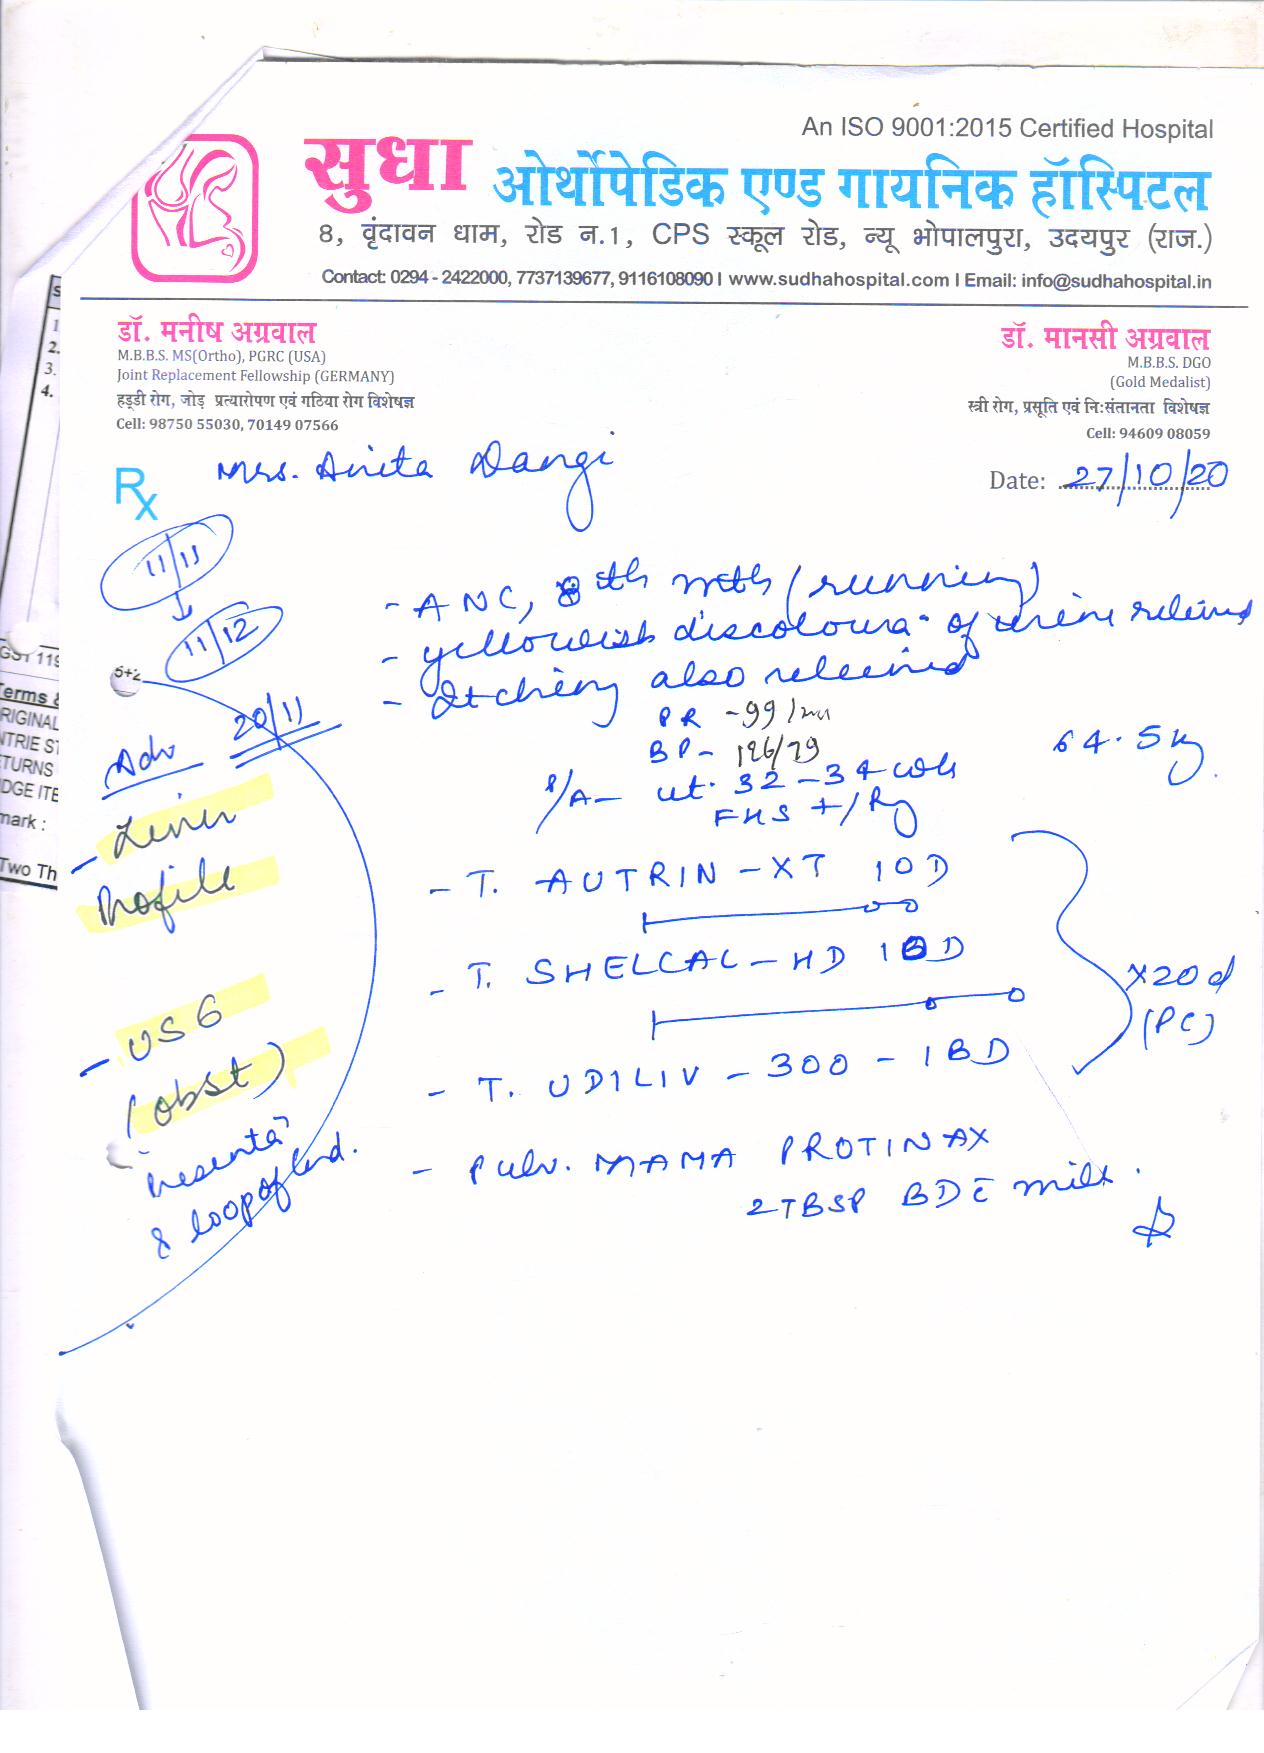 An ISO 9001:2015 Certified Hospital
सुधा ओर्थोपेडिक एण्ड गायनिक हॉस्पिटल
8, वृंदावन धाम, रोड न.1, CPS स्कूल रोड, न्यू भोपालपुरा, उदयपुर (राज.)
Contact: 0294 - 2422000, 7737139677, 9116108090 I www.sudhahospital.com I Email: info@sudhahospital.in
डॉ. मनीष अग्रवाल
M.B.B.S. MS(Ortho), PGRC (USA)
Joint Replacement Fellowship (GERMANY)
हड्डी रोग, जोड़ प्रत्यारोपण एवं गठिया रोग विशेषज्ञ
Cell: 98750 55030, 70149 07566
डॉ. मानसी अग्रवाल
M.B.B.S. DGO
(Gold Medalist)
स्त्री रोग, प्रसूति एवं निःसंतानता विशेषज्ञ
Cell: 94609 08059
Rx Mrs. Anita Dangi
Date: 27/10/20
11/11
11/12
- ANC, 8th mth (running)
- yellowish discoloura- of urine relieved
- Itching also relieved
PR - 99/mn
BP - 126/79
64.5 kg
P/A - ut. 32-34 wks
FHS +/Rg
- T. AUTRIN - XT 1OD
- T. SHELCAL - HD 1 BD
- T. UDILIV - 300 - 1 BD
x20d
(PC)
- Pulv. MAMA PROTINAX
2TBSP BD c̄ milk.
5+2
Adv 20/11
- Liver
Profile
- USG
(obst)
& loop of cord.
1.
2.
3.
4.
GST 119
Terms &
ORIGINAL
mark :
Two Th